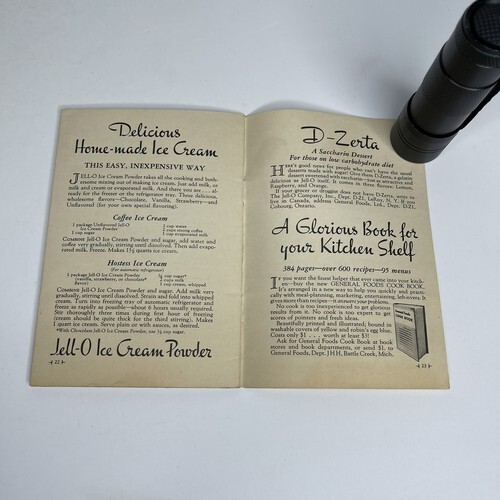 Delicious
Home-made Ice Cream
THIS EASY, INEXPENSIVE WAY
JELL-O Ice Cream Powder takes all the cooking and both-
ersome mixing out of making ice cream. Just add milk, or
milk and cream or evaporated milk. And there you are . . . al-
ready for the freezer or the refrigerator way. Three delicious,
wholesome flavors—Chocolate, Vanilla, Strawberry—and
Unflavored (for your own special flavoring).
Coffee Ice Cream
1 package Unflavored Jell-O
Ice Cream Powder
1 cup sugar
1 cup water
2 cups strong coffee
1 cup evaporated milk
COMBINE Jell-O Ice Cream Powder and sugar, add water and
coffee very gradually, stirring until dissolved. Then add evapo-
rated milk. Freeze. Makes 1½ quarts ice cream.
Hostess Ice Cream
(For automatic refrigerator)
1 package Jell-O Ice Cream Powder
(vanilla, strawberry, or chocolate*
flavor)
¼ cup sugar*
2 cups milk
1 cup cream, whipped
COMBINE Jell-O Ice Cream Powder and sugar. Add milk very
gradually, stirring until dissolved. Strain and fold into whipped
cream. Turn into freezing tray of automatic refrigerator and
freeze as rapidly as possible—about 6 hours usually required.
Stir thoroughly three times during first hour of freezing
(cream should be quite thick for the third stirring). Makes
1 quart ice cream. Serve plain or with sauces, as desired.
*With Chocolate Jell-O Ice Cream Powder, use ½ cup sugar.
Jell-O Ice Cream Powder
22
D-Zerta
A Saccharin Dessert
For those on low carbohydrate diet
HERE'S good news for people who can't have the usual
desserts made with sugar! Give them D-Zerta, a gelatin
dessert sweetened with saccharin—just as attractive and
delicious as Jell-O itself. It comes in three flavors: Lemon,
Raspberry, and Orange.
If your grocer or druggist does not have D-Zerta, write to
The Jell-O Company, Inc., Dept. DZ1, LeRoy, N. Y. If you
live in Canada, address General Foods, Ltd., Dept. DZ1,
Cobourg, Ontario.
A Glorious Book for
your Kitchen Shelf
384 pages—over 600 recipes—95 menus
IF you want the finest helper that ever came into your kitch-
en—buy the new GENERAL FOODS COOK BOOK.
It's arranged in a new way to help you quickly and practi-
cally with meal-planning, marketing, entertaining, left-overs. It
gives more than recipes—it answers your problem.
No cook is too inexperienced to get glorious
results from it. No cook is too expert to get
scores of pointers and fresh ideas.
Beautifully printed and illustrated; bound in
washable covers of yellow and robin's egg blue.
Costs only $1 . . . worth at least $3!
Ask for General Foods Cook Book at book
stores and department stores, or send $1. to
General Foods, Dept. JHH, Battle Creek, Mich.
COOK BOOK
23